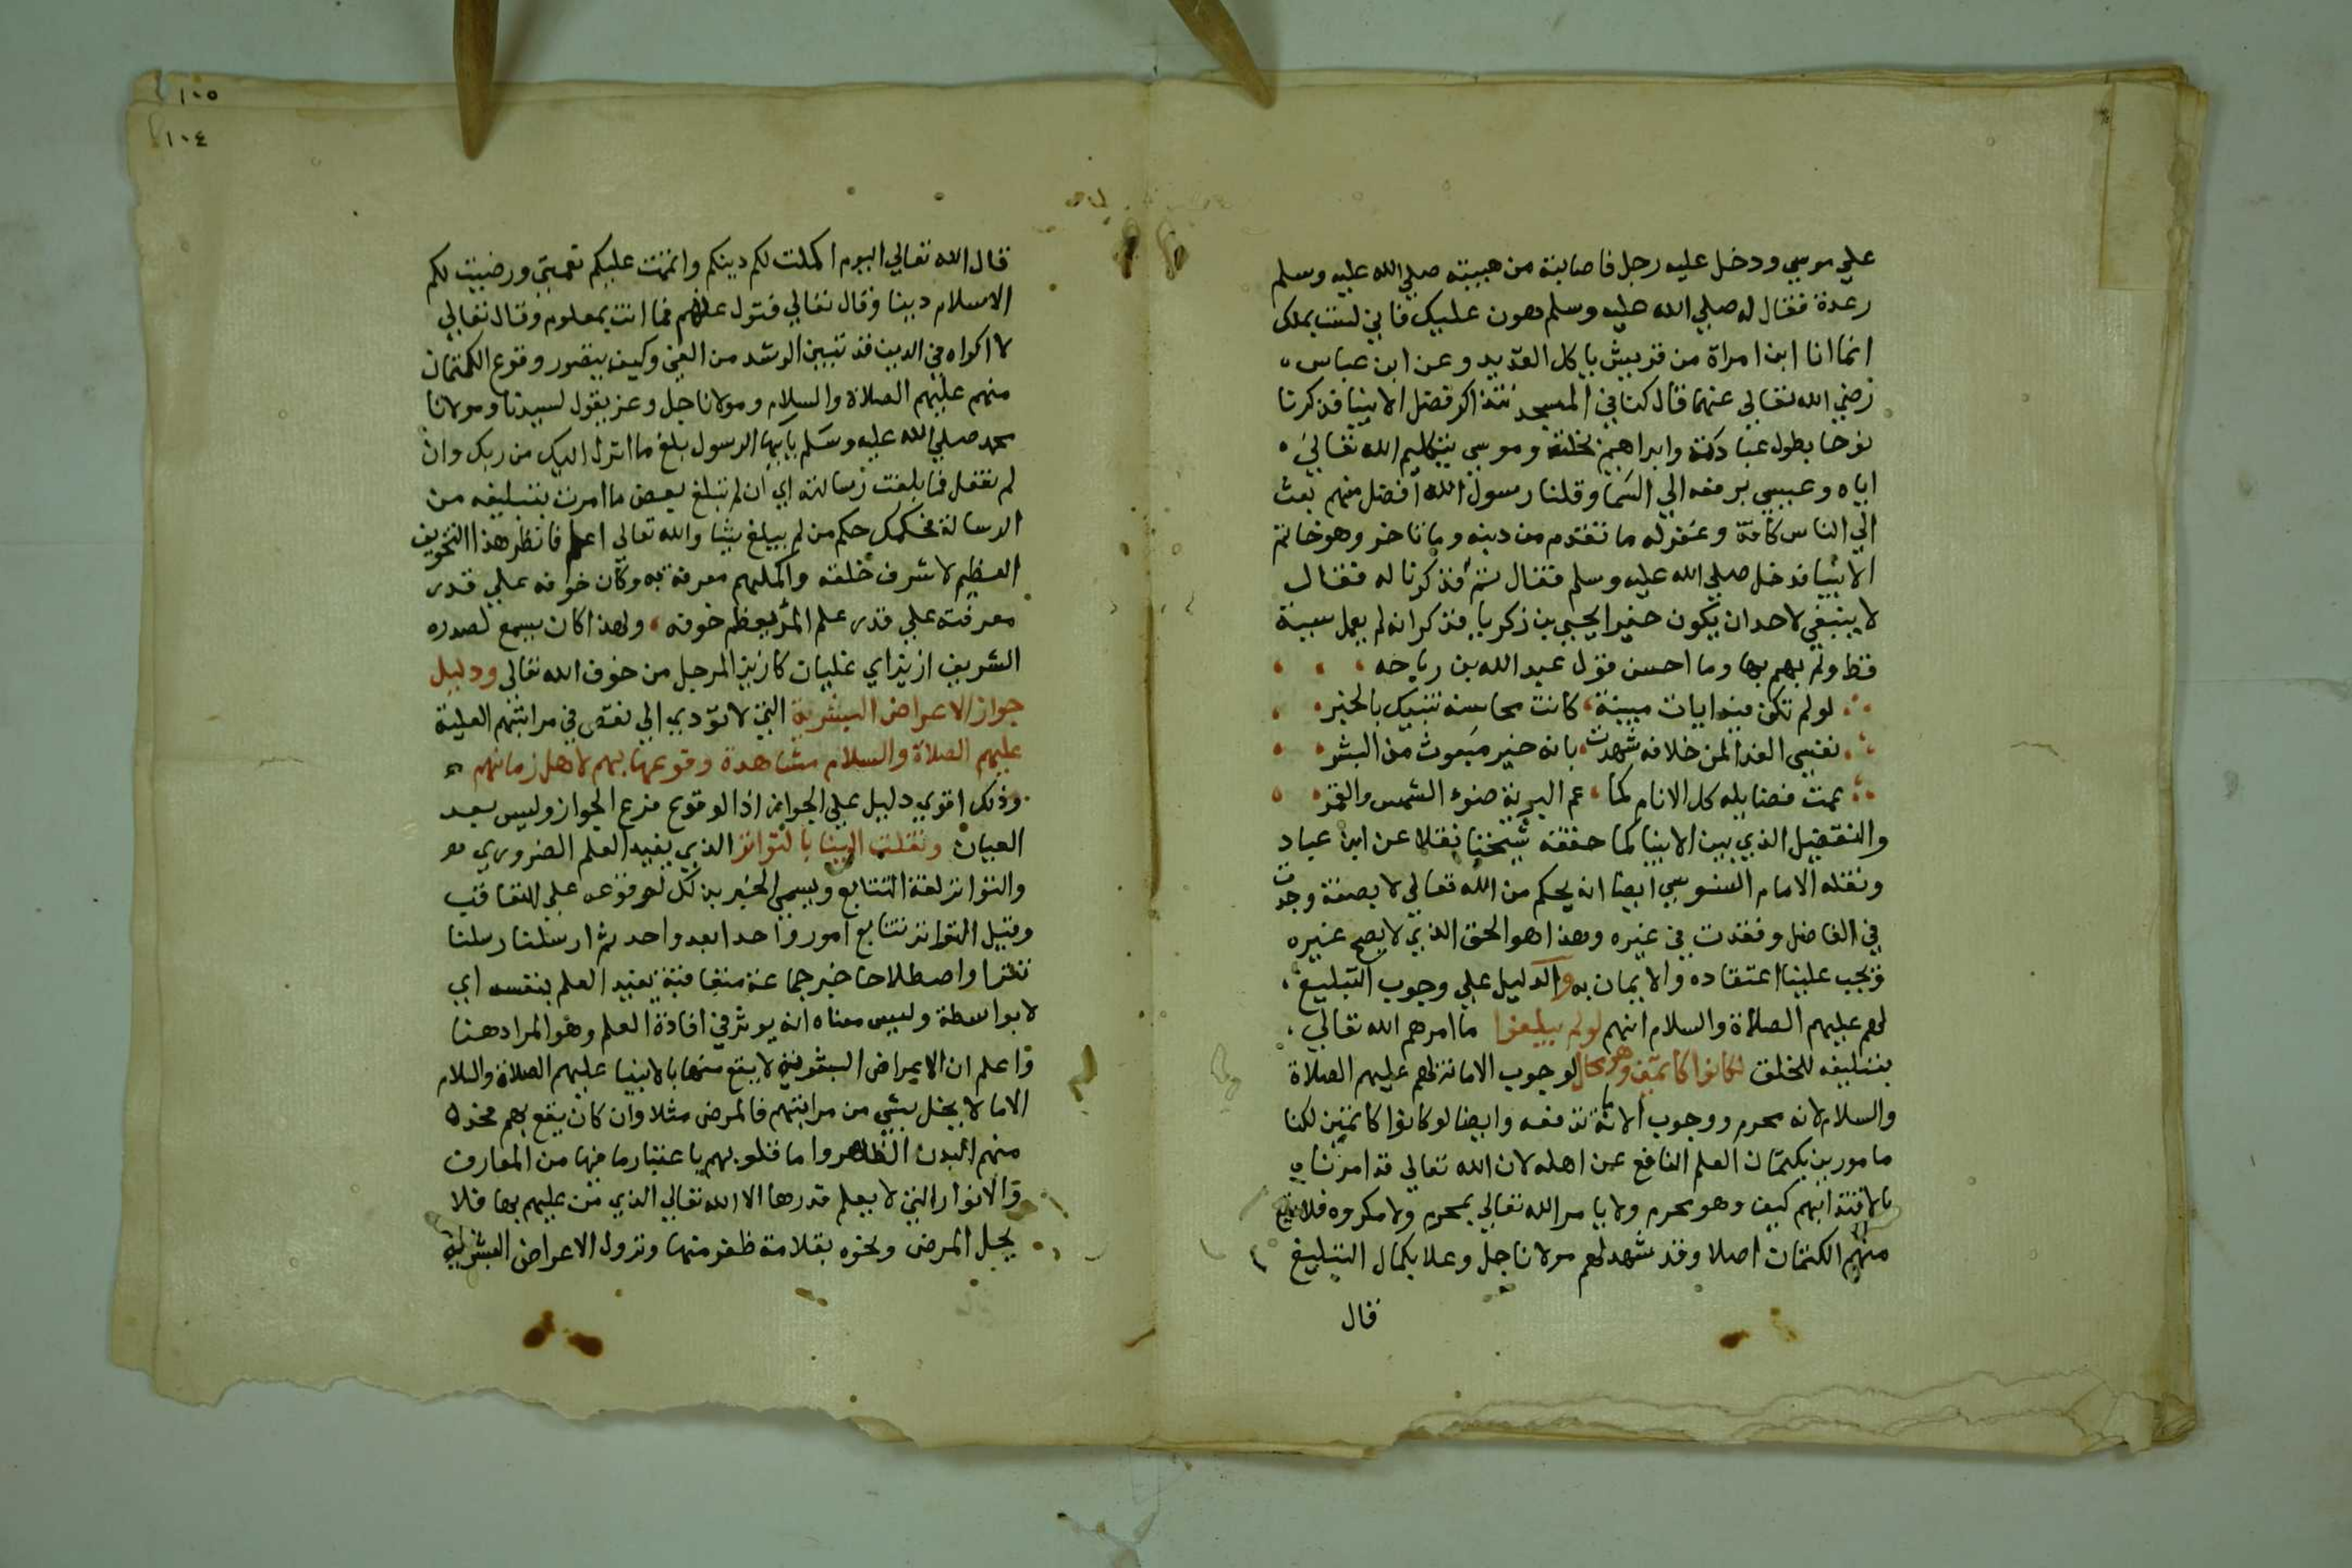 علي موسي ودخل عليه رجل فاصابته من هيبته صلي الله عليه وسلم
رعدة فقال له صلي الله عليه وسلم هون عليك فاني لست بملك
انما انا ابن امراة من قريش ياكل القديد وعن ابن عباس
رضي الله تعالي عنهما قال كنا في المسجد نتذاكر فضل الانبيا فذكرنا
نوحا بطول عبادته وابراهيم بخلته وموسي بتكليم الله تعالي
اياه وعيسي برفعه الي السما وقلنا رسول الله افضل منهم بعث
الي الناس كافة وغفر له ما تقدم من ذنبه وما تاخر وهو خاتم
الانبيا فدخل صلي الله عليه وسلم فقال بم فذكرنا له فقال
لا ينبغي لاحد ان يكون خيرا يحيي بن زكريا فذكر انه لم يعمل سيئة
قط ولم يهم بها وما احسن قول عبد الله بن رواحه
لو لم تكن فيه ايات مبينة كانت محاسنه تنبيك بالخبر
نفسي الفدا لمن خلاقه شهدت بانه خير مبعوث من البشر
عمت فضايله كل الانام كما عم البرية ضوء الشمس والقمر
والتفضيل الذي بين الانبيا كما حققه شيخنا نقلا عن ابن عباد
ونقله الامام السنوسي ايضا انه يحكم من الله تعالي لا بصفة وجدت
في الفاضل وفقدت في غيره وهذا هو الحق الذي لا يصح غيره
فيجب علينا اعتقاده والايمان به والدليل علي وجوب التبليغ
لهم عليهم الصلاة والسلام انهم لو لم يبلغوا ما امرهم الله تعالي
بتبليغه للخلق لكانوا كاتمين وهو محال لوجوب الامانة لهم عليهم الصلاة
والسلام لانه محرم ووجوب الامانة تدفعه وايضا لو كانوا كاتمين لكنا
مامورين بكتمان العلم النافع عن اهله لان الله تعالي قد امرنا
بالاقتدا بهم كيف وهو محرم ولا يامر الله تعالي بمحرم ولا مكروه فلا يقع
منهم الكتمان اصلا وقد شهد لهم مولانا جل وعلا بكمال التبليغ
قال
١٠٥
١٠٤
قال الله تعالي اليوم اكملت لكم دينكم واتممت عليكم نعمتي ورضيت لكم
الاسلام دينا وقال تعالي فتول عنهم فما انت بملوم وقال تعالي
لا اكراه في الدين قد تبين الرشد من الغي وكيف يتصور وقوع الكتمان
منهم عليهم الصلاة والسلام ومولانا جل وعز يقول لسيدنا ومولانا
محمد صلي الله عليه وسلم يايها الرسول بلغ ما انزل اليك من ربك وان
لم تفعل فما بلغت رسالته اي ان لم تبلغ بعض ما امرت بتبليغه من
الرسالة فحكمك حكم من لم يبلغ شيئا والله تعالي اعلم فانظر هذا التخويف
العظيم لاشرف خلقه واكملهم معرفة به وكان خوفه علي قدر
معرفته علي قدر علم المرء يعظم خوفه ولهذا كان يسمع لصدره
الشريف ازيز اي غليان كازيز المرجل من خوف الله تعالي ودليل
جواز الاعراض البشرية التي لا تودي الي نقص في مراتبهم العلية
عليهم الصلاة والسلام مشاهدة وقوعها بهم لاهل زمانهم
وذلك اقوي دليل علي الجواز اذ الوقوع فرع الجواز وليس بعد
العيان ونقلت الينا بالتواتر الذي يفيد العلم الضروري
والتواتر لغة التتابع وقيل التواتر تتابع امور واحدا بعد واحد ثم ارسلنا رسلنا
تترا واصطلاحا خبر جماعة يفيد العلم بنفسه اي
لا بواسطة وليس معناه انه يوثر في افادة العلم وهو المراد هنا
واعلم ان الاعراض البشرية لا يقع منها بالانبيا عليهم الصلاة والسلام
الا ما لا يخل بشي من مراتبهم فالمرض مثلا وان كان يقع بهم فحده
منهم البدن الظاهر واما قلوبهم باعتبار ما فيها من المعارف
والانوار التي لا يعلم قدرها الا الله تعالي الذي من عليهم بها فلا
يخل المرض ونحوه بقلامة ظفر منها ونزول الاعراض البشرية